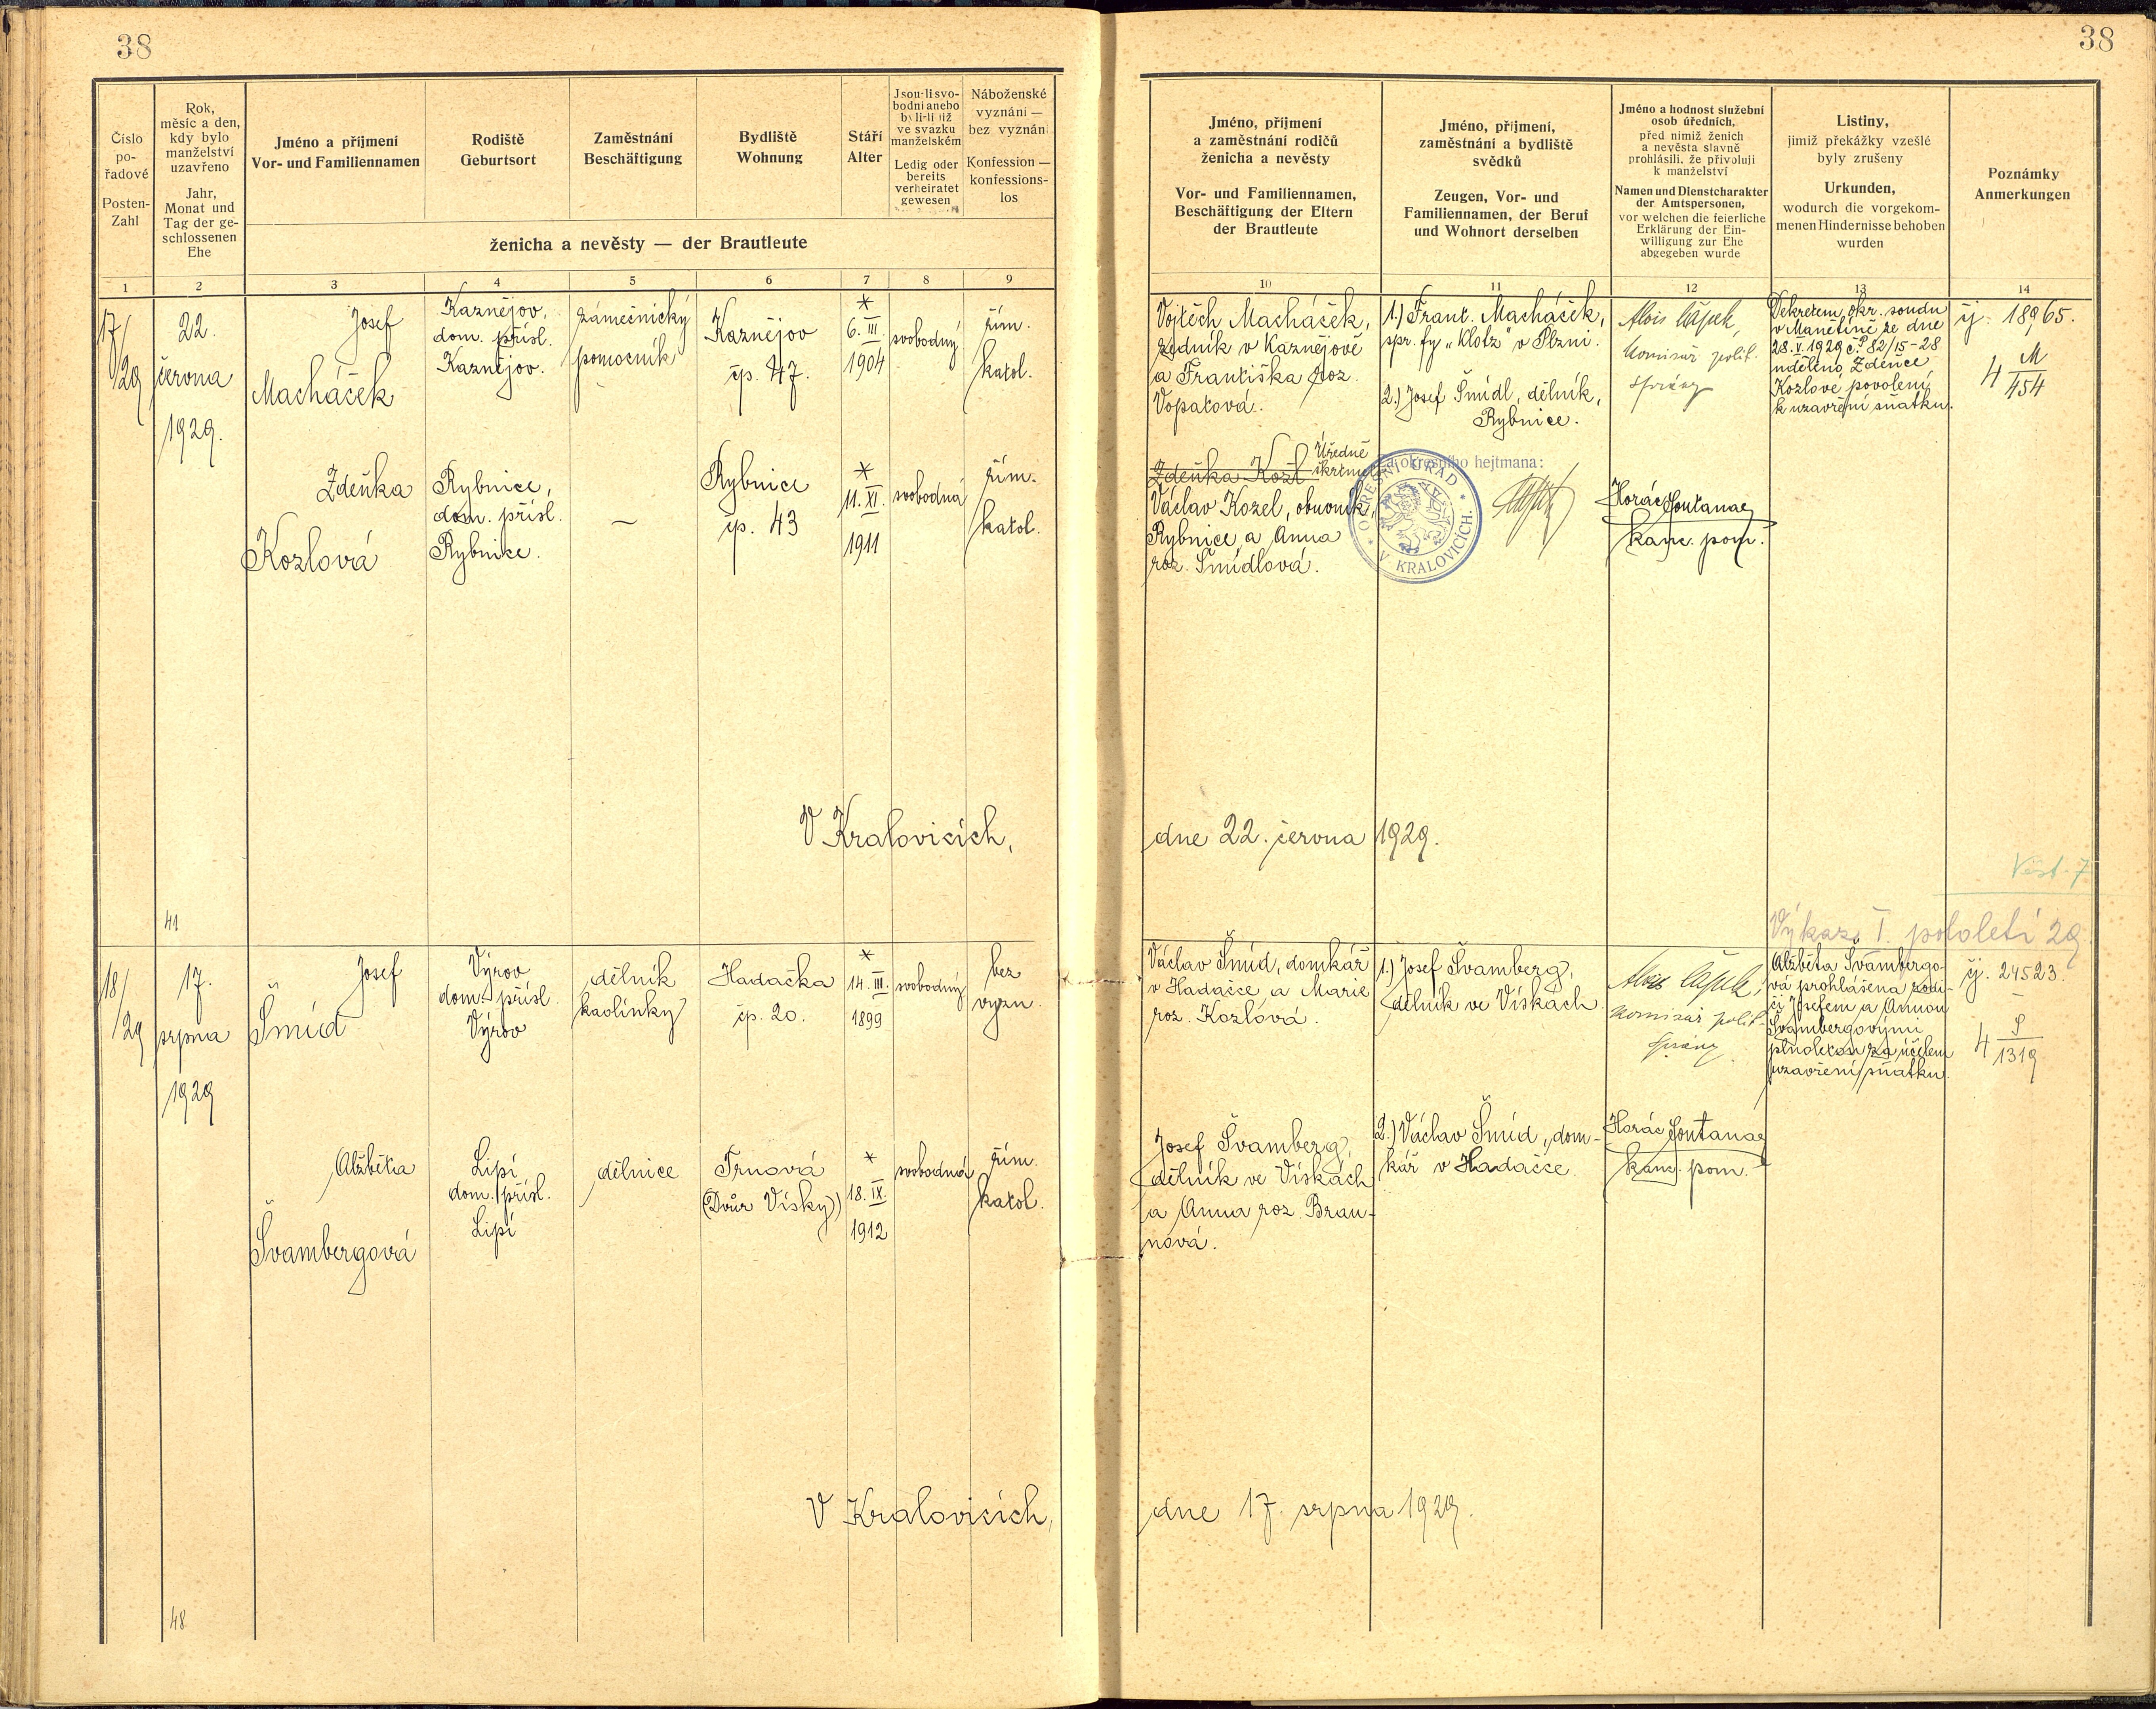 38
38
Číslo
po-
řadové
Posten-
Zahl
Rok,
měsíc a den,
kdy bylo
manželství
uzavřeno
Jahr,
Monat und
Tag der ge-
schlossenen
Ehe
Jméno a příjmení
Vor- und Familiennamen
Rodiště
Geburtsort
Zaměstnání
Beschäftigung
Bydliště
Wohnung
Stáří
Alter
Jsou-li svo-
bodni anebo
byli-li již
ve svazku
manželském
Ledig oder
bereits
verheiratet
gewesen
Náboženské
vyznání —
bez vyznání
Konfession —
konfessions-
los
ženicha a nevěsty — der Brautleute
1 2 3 4 5 6 7 8 9
17/
/29
22.
června
1929.
Josef
Macháček
Kaznějov,
dom. přísl.
Kaznějov.
zámečnický
pomocník
Kaznějov
čp. 47.
*
6. III.
1904
svobodný
řím.
katol.
Zdeňka
Kozlová
Rybnice,
dom. přísl.
Rybnice.
—
Rybnice
čp. 43
*
11. XI.
1911
svobodná
řím.
katol.
V Kralovicích,
41
18/
/29
17.
srpna
1929
Josef
Šmíd
Výrov
dom. přísl.
Výrov
dělník
kaolinky
Hadačka
čp. 20.
*
14. III.
1899
svobodný
bez
vyzn.
Alžběta
Švambergová
Lipí
dom. přísl.
Lipí
dělnice
Trnová
(Dvůr Vísky)
*
18. IX.
1912
svobodná
řím.
katol.
V Kralovicích,
48
Jméno, příjmení
a zaměstnání rodičů
ženicha a nevěsty
Vor- und Familiennamen,
Beschäftigung der Eltern
der Brautleute
Jméno, příjmení,
zaměstnání a bydliště
svědků
Zeugen, Vor- und
Familiennamen, der Beruf
und Wohnort derselben
Jméno a hodnost služební
osob úředních,
před nimiž ženich
a nevěsta slavně
prohlásili, že přivolují
k manželství
Namen und Dienstcharakter
der Amtspersonen,
vor welchen die feierliche
Erklärung der Ein-
willigung zur Ehe
abgegeben wurde
Listiny,
jimiž překážky vzešlé
byly zrušeny
Urkunden,
wodurch die vorgekom-
menen Hindernisse behoben
wurden
Poznámky
Anmerkungen
10 11 12 13 14
Vojtěch Macháček,
zedník v Kaznějově
a Františka roz.
Vopatová.
1.) Frant. Macháček,
spr. fy „Klotz" v Plzni.
2.) Josef Šmídl, dělník,
Rybnice.
Alois Čapek,
komisař polit.
správy
Dekretem okr. soudu
v Manětíně ze dne
28. V. 1929 č. P 82/15-28
uděleno Zdeňce
Kozlové povolení
k uzavření sňatku.
čj. 18965.
4 M
454
Zdeňka Kozl
Úředně
škrtnuto
Václav Kozel, obuvník,
Rybnice, a Anna
roz. Šmídlová.
okresního hejtmana:
OKRESNÍ ÚŘAD
V KRALOVICÍCH.
Horác Fontana
kanc. pom.
dne 22. června 1929.
Věst. 7
Výkaz I. pololetí 29.
Václav Šmíd, domkář
v Hadačce, a Marie
roz. Kozlová.
1.) Josef Švamberg,
dělník ve Vískách.
Alois Čapek,
komisař polit.
správy
Alžběta Švambergo-
vá prohlášena rodi-
či Josefem a Annou
Švambergovými
plnoletou za účelem
uzavření sňatku.
čj. 24523.
4 S
1319
Josef Švamberg,
dělník ve Vískách
a Anna roz. Brau-
nová.
2.) Václav Šmíd, dom-
kář v Hadačce.
Horác Fontana
kanc. pom.
dne 17. srpna 1929.